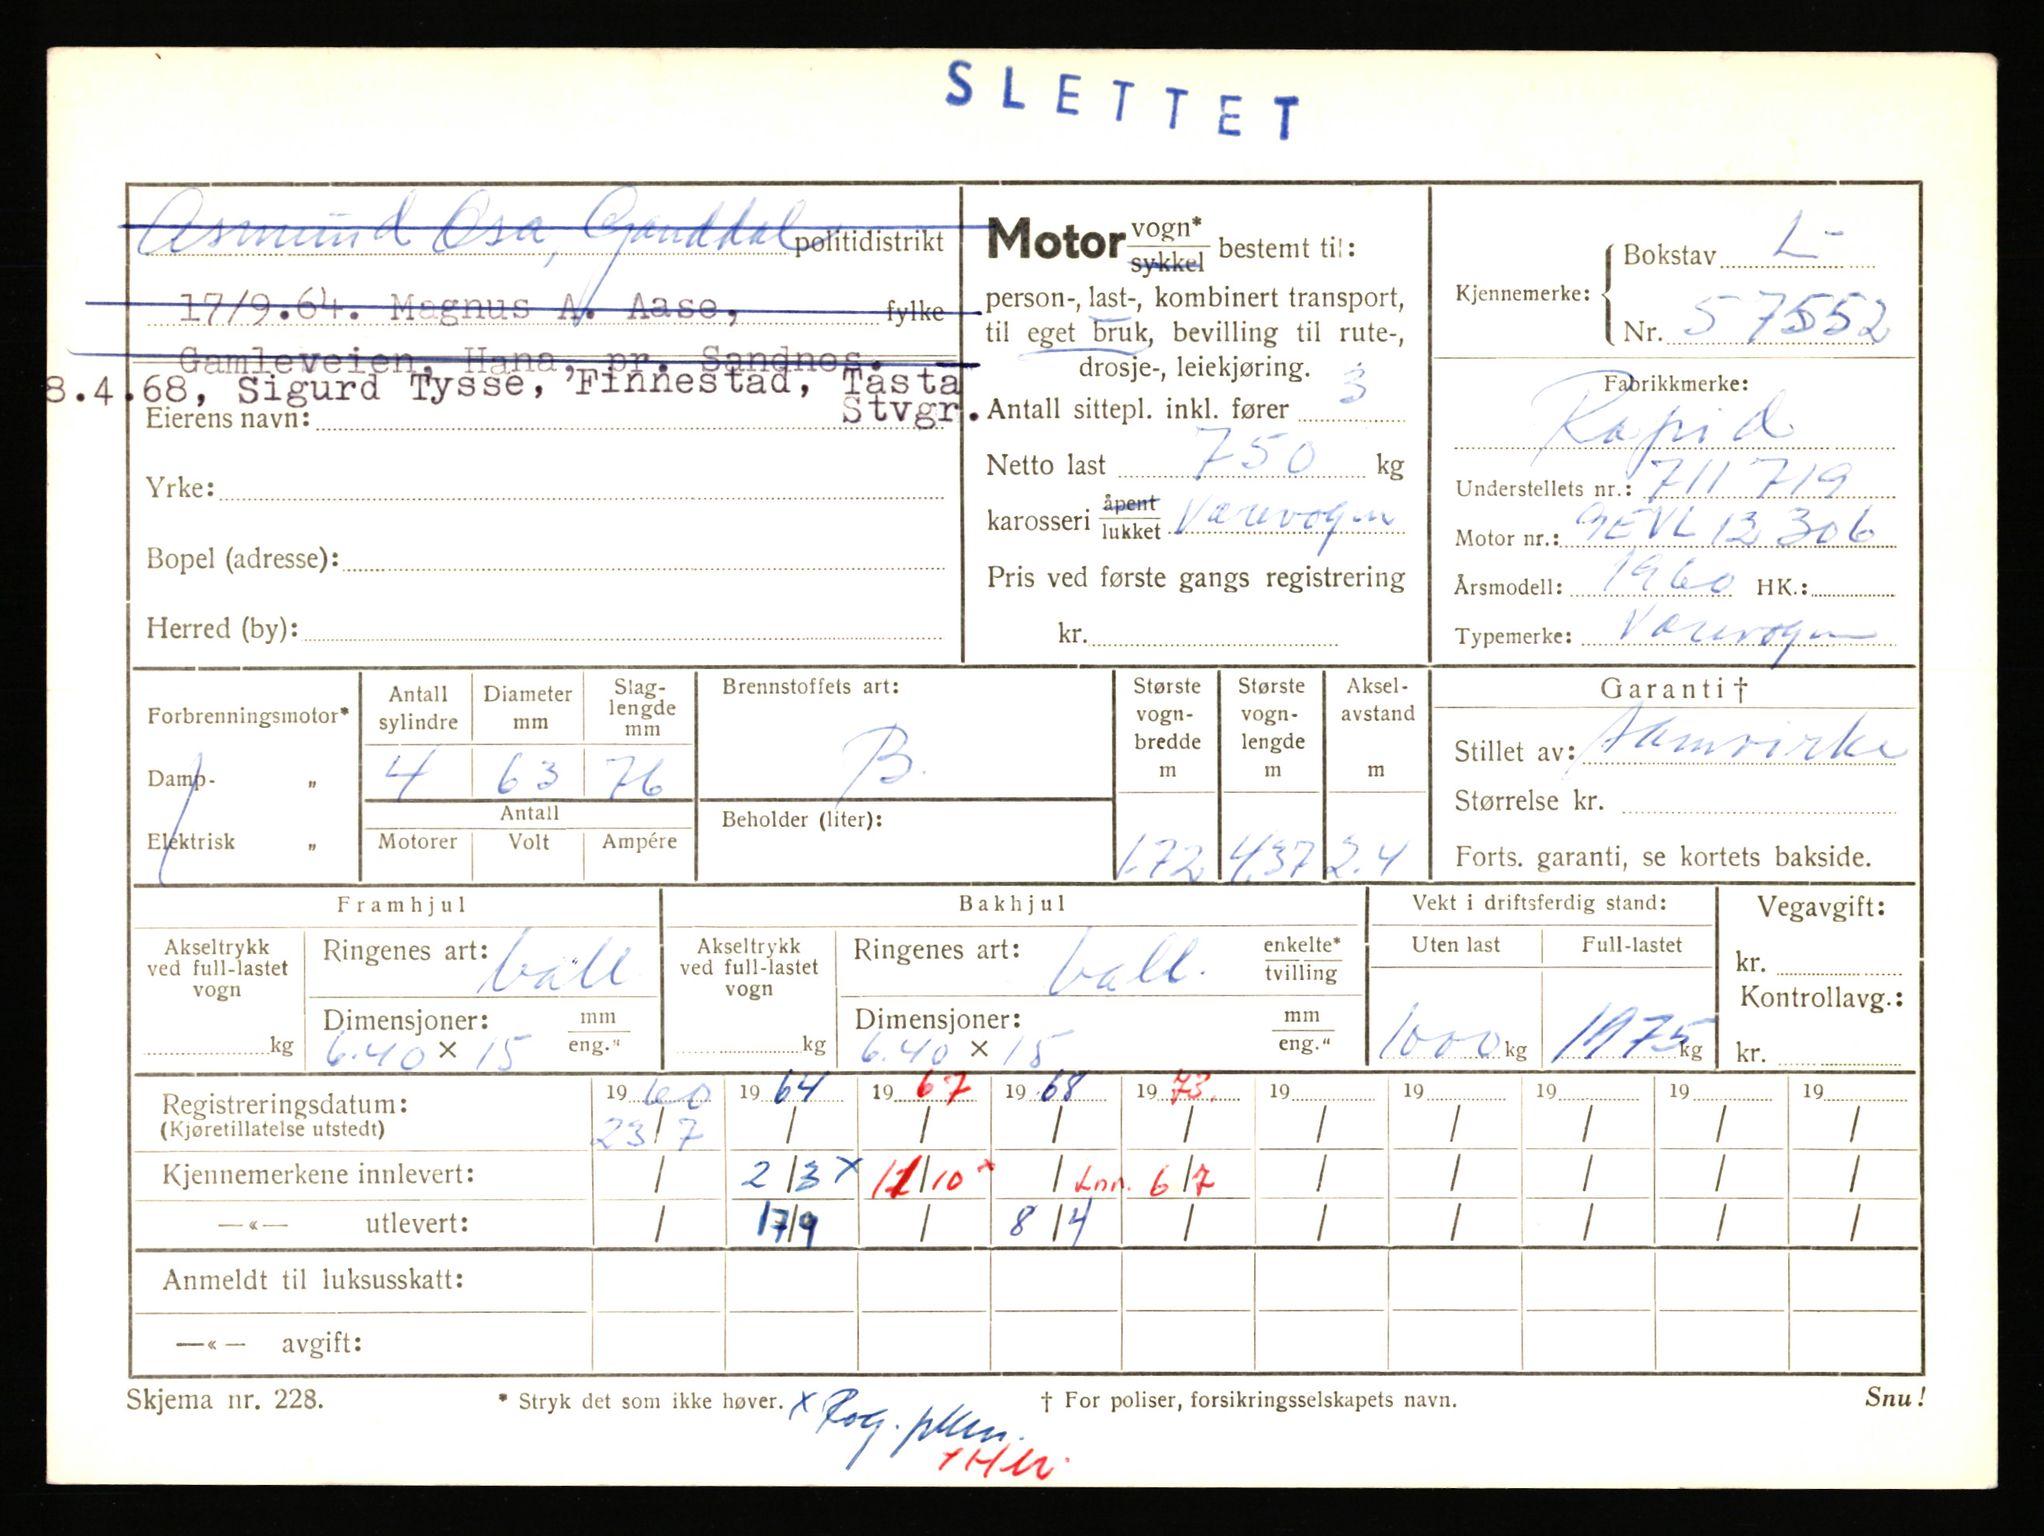 SLETTET
Asmund Osa, Ganddal politidistrikt
17/9.64. Magnus A. Aase, fylke
Gamleveien, Hana, pr. Sandnes.
8.4.68, Sigurd Tysse, Finnestad, Tasta
Stvgr.
Eierens navn:
Yrke:
Bopel (adresse):
Herred (by):
Motor vogn* sykkel bestemt til:
person-, last-, kombinert transport,
til eget bruk, bevilling til rute-,
drosje-, leiekjøring.
Antall sittepl. inkl. fører 3
Netto last 750 kg
karosseri åpent lukket Varevogn
Pris ved første gangs registrering
kr.
Kjennemerke: Bokstav L-
Nr. 57552
Fabrikkmerke:
Rapid
Understellets nr.: 711719
Motor nr.: 9EVL 13306
Årsmodell: 1960 HK.:
Typemerke: Varevogn
Forbrenningsmotor*
Damp- „
Elektrisk „
Antall sylindre 4
Diameter mm 63
Slag-lengde mm 76
Antall
Motorer Volt Ampére
Brennstoffets art:
B.
Beholder (liter):
Største vogn-bredde m 1.72
Største vogn-lengde m 4,37
Aksel-avstand m 2.4
Garanti †
Stillet av: Samvirke
Størrelse kr.
Forts. garanti, se kortets bakside.
Framhjul
Akseltrykk ved full-lastet vogn
kg
Ringenes art: ball
Dimensjoner: mm
6.40 × 15 eng."
Bakhjul
Akseltrykk ved full-lastet vogn
kg
Ringenes art: ball. enkelte* tvilling
Dimensjoner: mm
6.40 × 15 eng."
Vekt i driftsferdig stand:
Uten last Full-lastet
1000 kg 1975 kg
Vegavgift:
kr.
Kontrollavg.:
kr.
Registreringsdatum: 1960 1964 1967 1968 1973. 19 19 19 19 19
(Kjøretillatelse utstedt) 23/7 / / / / / / / / /
Kjennemerkene innlevert: / 2/3 x 11/10 x / Inn. 6/7 / / / / /
—«— utlevert: / 17/9 / 8/4 / / / / / /
Anmeldt til luksusskatt:
—«— avgift:
Skjema nr. 228. * Stryk det som ikke høver. † For poliser, forsikringsselskapets navn. Snu!
x Rog.